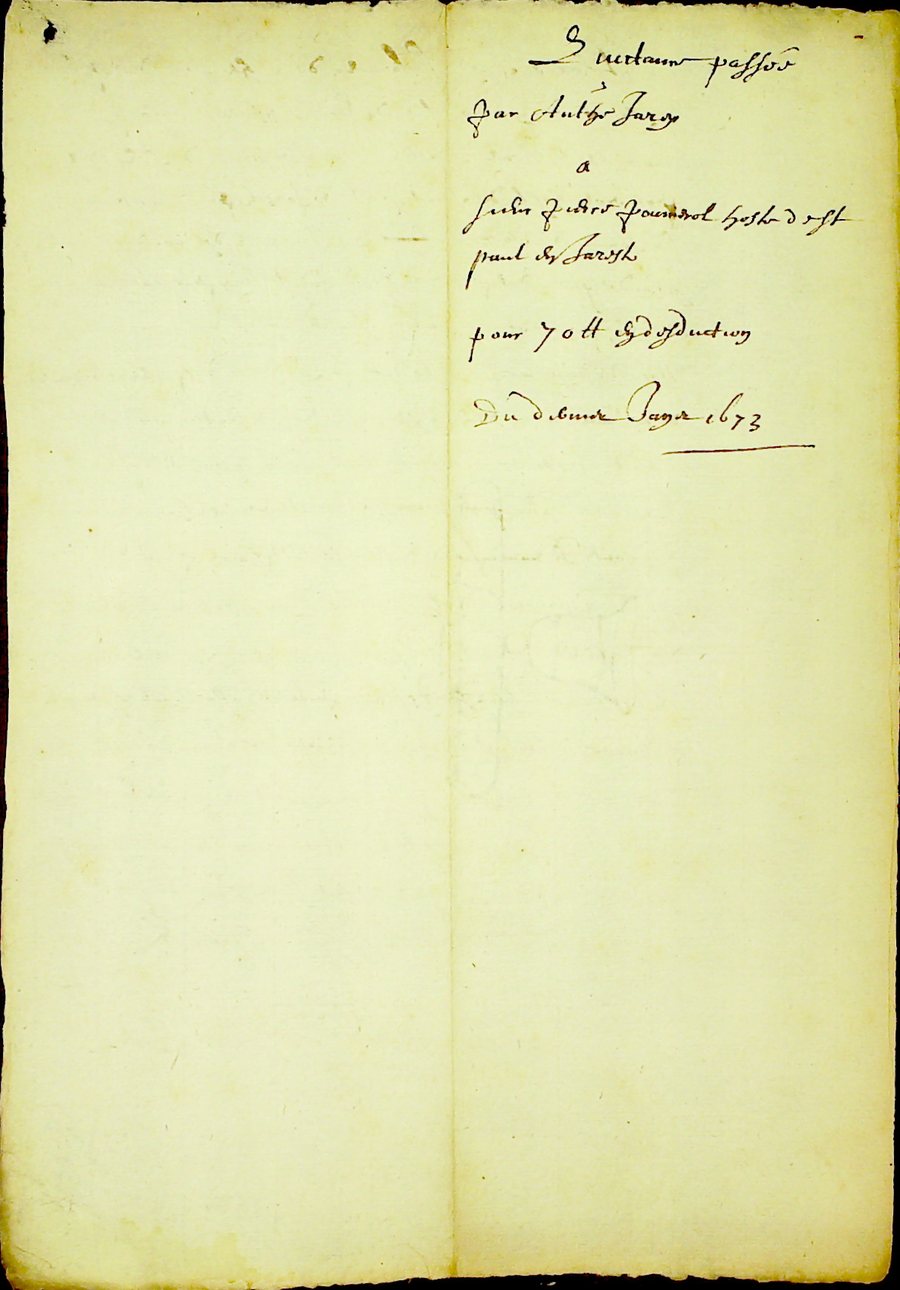 Quictance passée
par Anth^e Jarey
a
sieur pierre poumerol hoste de st
paul en Jarest
pour 70 tt en desduction
Du d Janer 1673